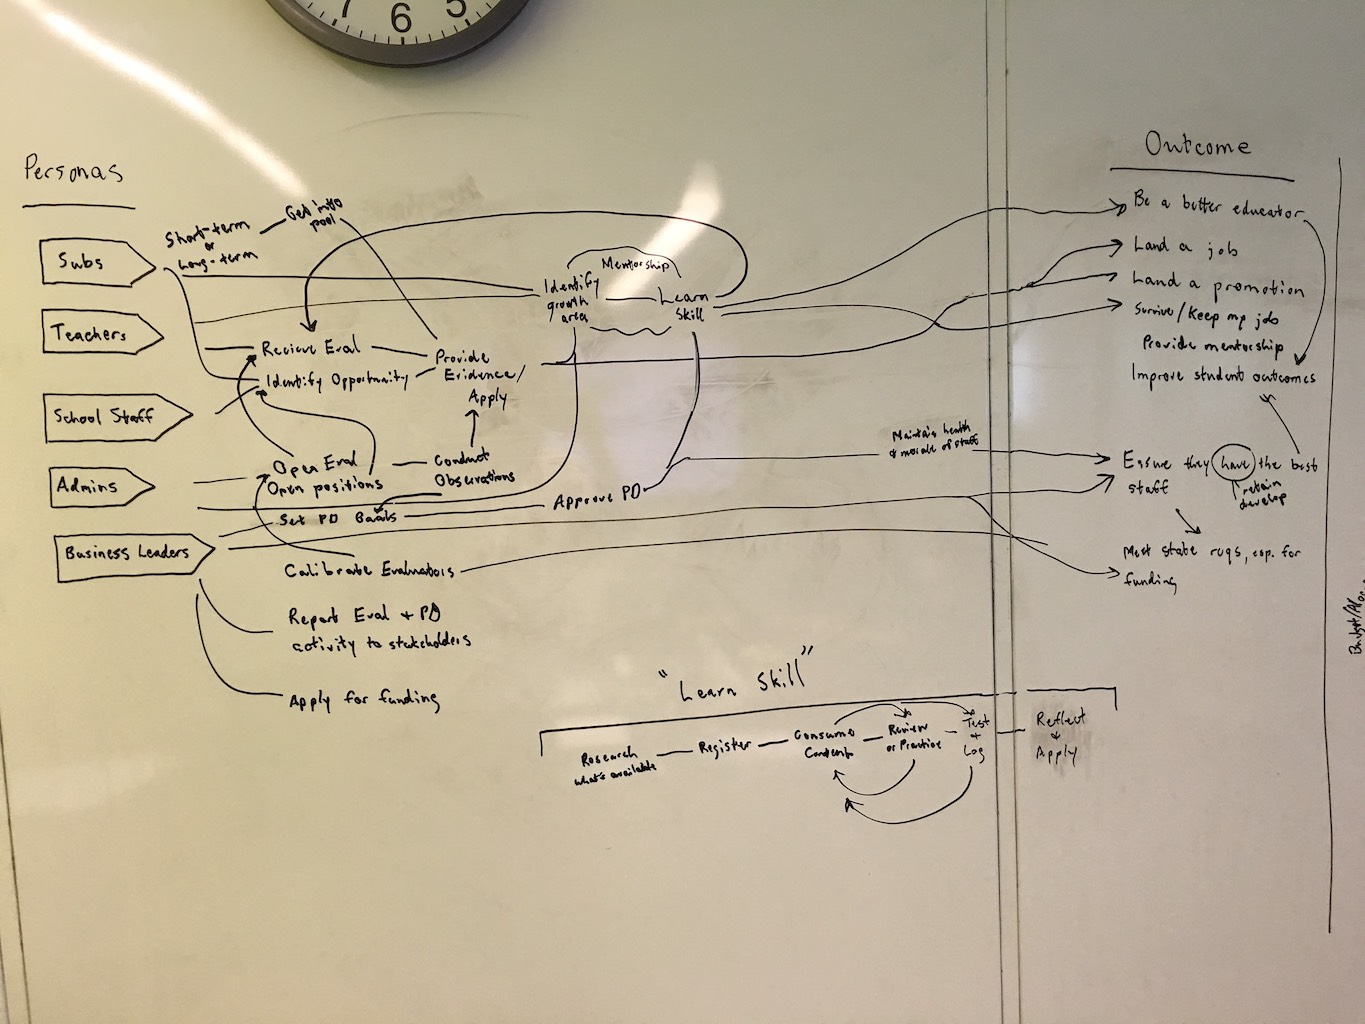 7 6 5
Personas
Outcome
Subs
Teachers
School Staff
Admins
Business Leaders
Short-term
or
Long-term
Get into
pool
Mentorship
Identify
growth
area
Learn
Skill
Recieve Eval
Identify Opportunity
Provide
Evidence/
Apply
Open Eval
Open positions
Conduct
Observations
Set PD Goals
Approve PD
Calibrate Evaluators
Report Eval + PD
activity to stakeholders
Apply for funding
Maintain health
& morale of staff
Be a better educator
Land a job
Land a promotion
Survive/Keep my job
Provide mentorship
Improve student outcomes
Ensure they have the best
staff
retain
develop
Meet state rqqs, esp. for
funding
"Learn Skill"
Research
what's available
Register
Consume
Content
Review
or Practice
Test
+
Log
Reflect
+
Apply